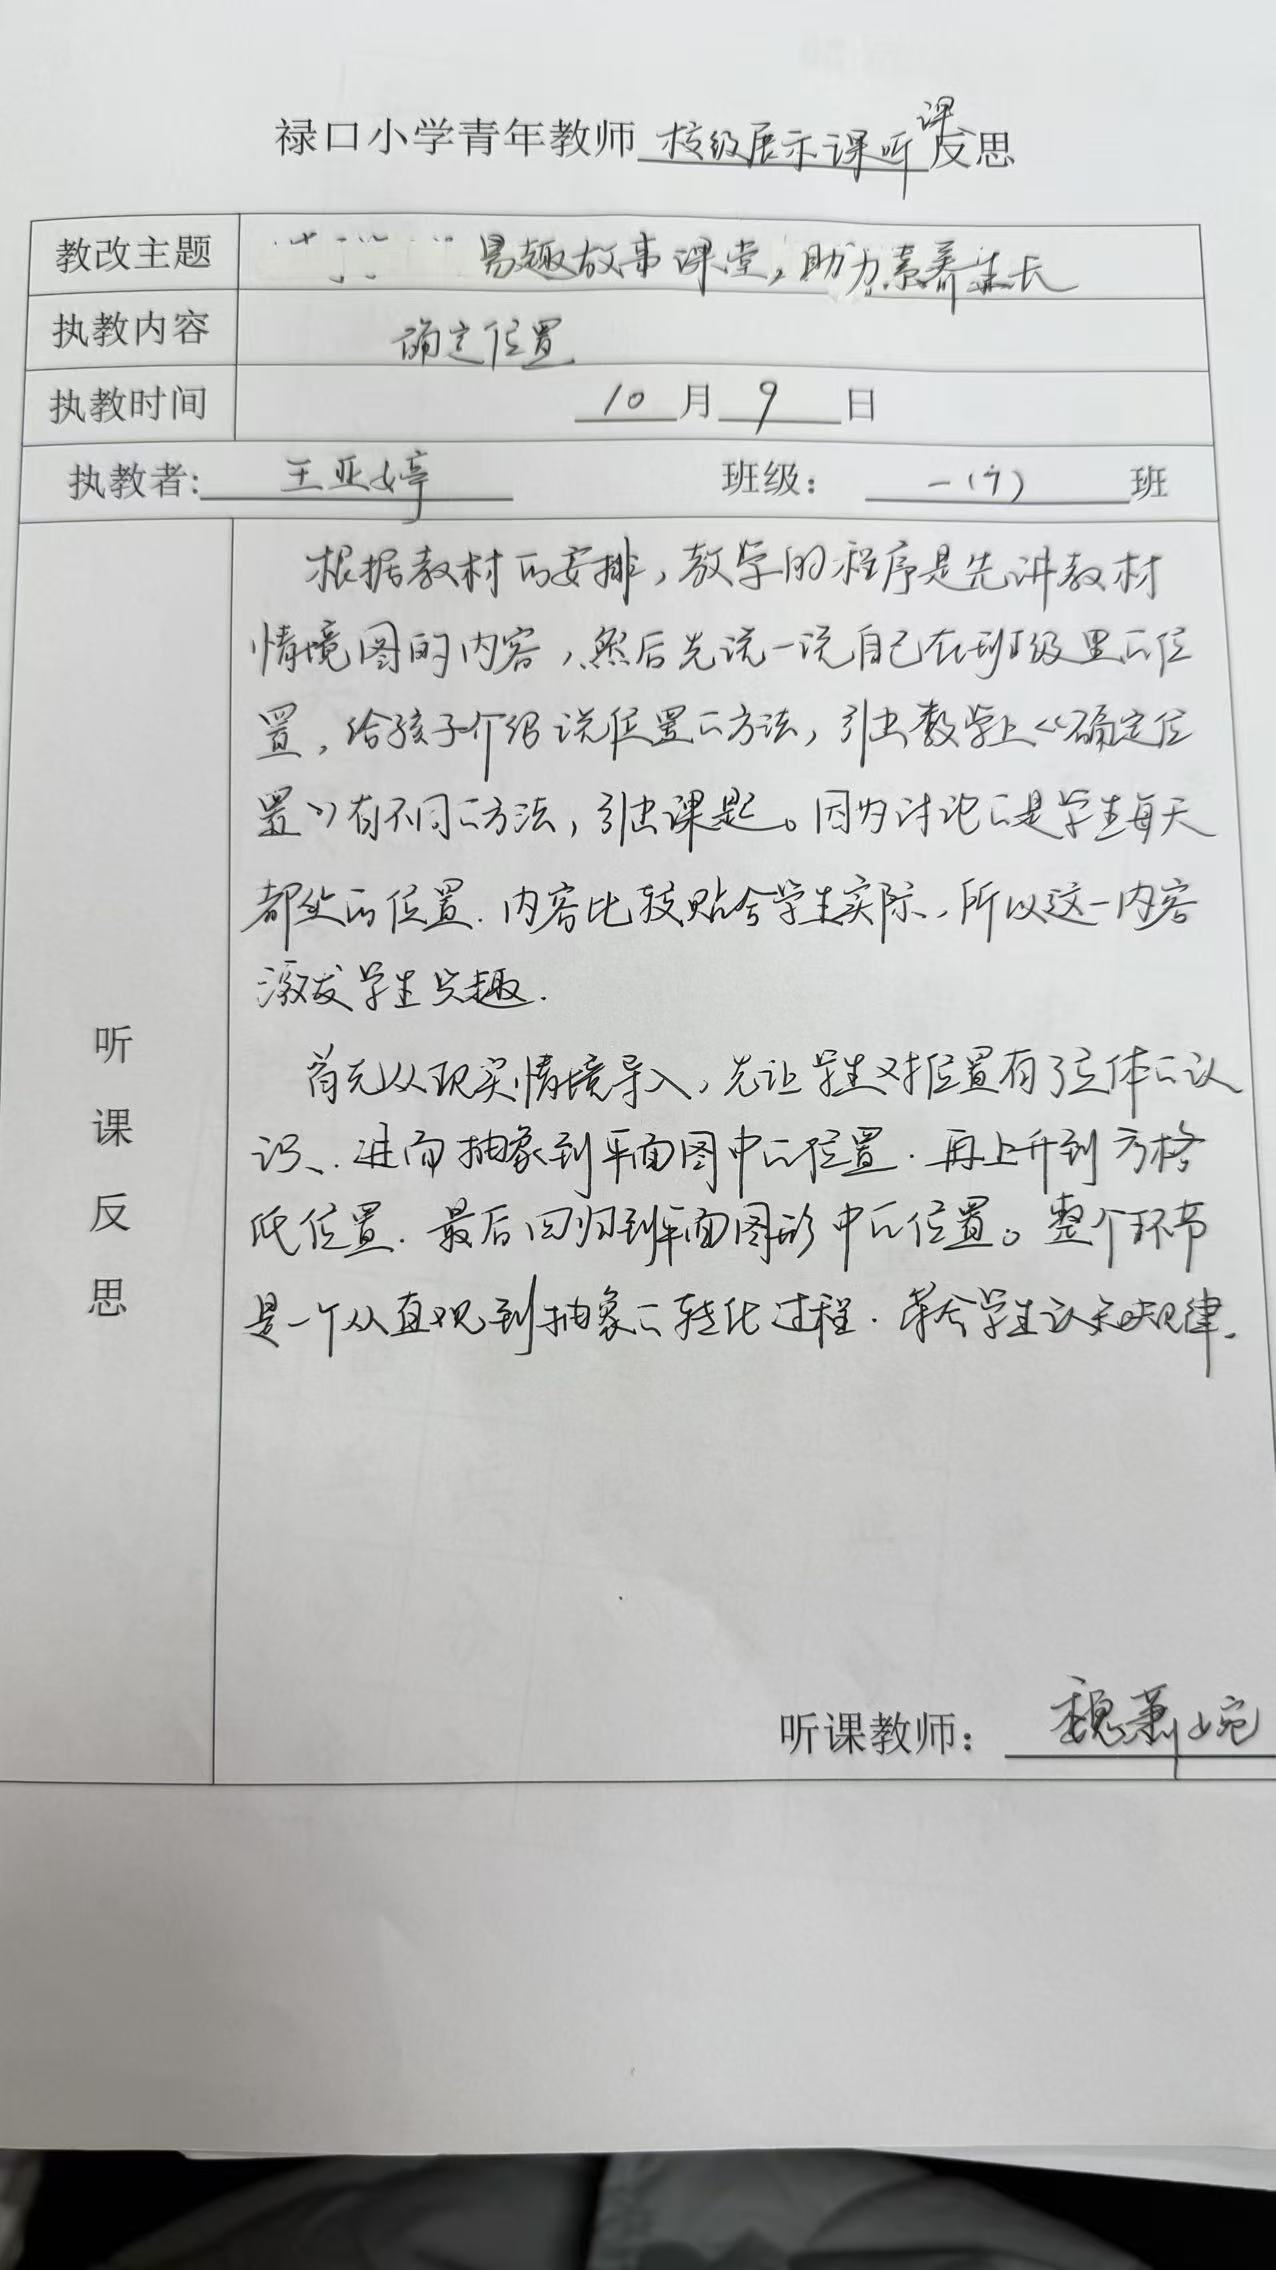 禄口小学青年教师校级展示课听课反思
教改主题 易趣故事课堂，助力素养生长
执教内容 确定位置
执教时间 10月9日
执教者：王亚婷 班级：一（7）班
听课反思
根据教材的安排，教学的程序是先讲教材
情境图的内容，然后先说一说自己在班级里的位
置，给孩子介绍说位置的方法，引出数学上《确定位
置》有不同的方法，引出课题。因为讨论的是学生每天
都处的位置．内容比较贴合学生实际，所以这一内容
激发学生兴趣．
首先从现实情境导入，先让学生对位置有了立体的认
识、．进而抽象到平面图中的位置．再上升到方格
纸位置．最后回归到平面图形中的位置。整个环节
是一个从直观到抽象的转化过程．符合学生认知规律．
听课教师：魏萧婉